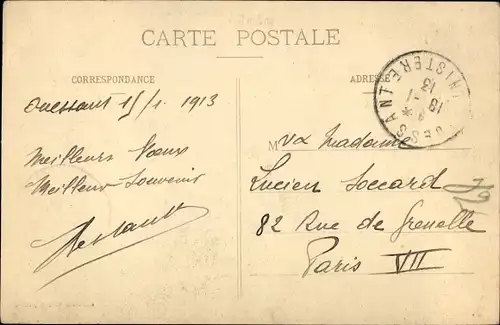 CARTE POSTALE
CORRESPONDANCE
ADRESSE
OUESSANT
FINISTERE
18-1
13
Ouessant 15/1 1913
Meilleurs Voeux
Meilleur Souvenir
M Madame
Lucien Soccard
82 Rue de Grenelle
Paris VII